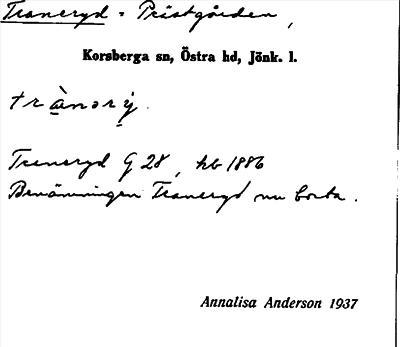 Traneryd = Prästgården,
Korsberga sn, Östra hd, Jönk. l.
trànərỳ.
Traneryd G 28, hb 1886
Benämningen Traneryd nu borta.
Annalisa Anderson 1937